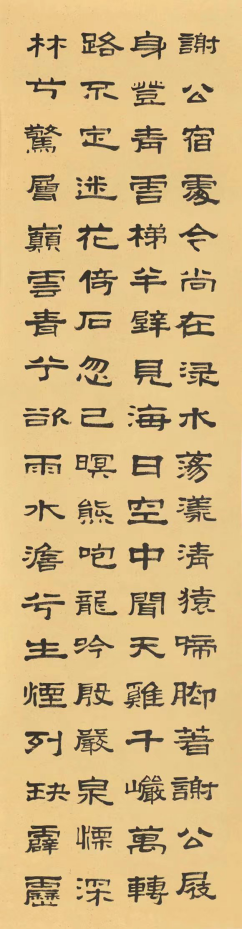 謝公宿處今尚在淥水蕩漾清猿啼脚著謝公屐
身登青雲梯半壁見海日空中聞天雞千巖萬轉
路不定迷花倚石忽已暝熊咆龍吟殷巖泉慄深
林兮驚層巔雲青兮欲雨水澹兮生煙列缺霹靂